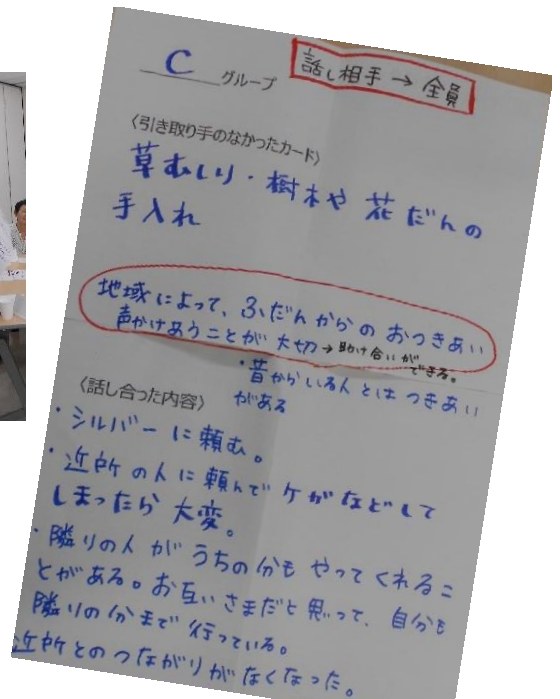 C グループ
話し相手 → 全員
〈引き取り手のなかったカード〉
草むしり・樹木や花だんの
手入れ
地域によって、ふだんからのおつきあい
声かけあうことが大切→助け合いが
できる。
・昔からいる人とはつきあい
がある
〈話し合った内容〉
・シルバーに頼む。
・近所の人に頼んでケガなどして
しまったら大変。
・隣りの人がうちの分もやってくれるこ
とがある。お互いさまだと思って、自分も
隣りの分まで行っている。
近所とのつながりがなくなった。